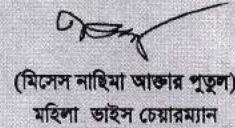 (মিসেস নাছিমা আক্তার পুতুল)
মহিলা ভাইস চেয়ারম্যান